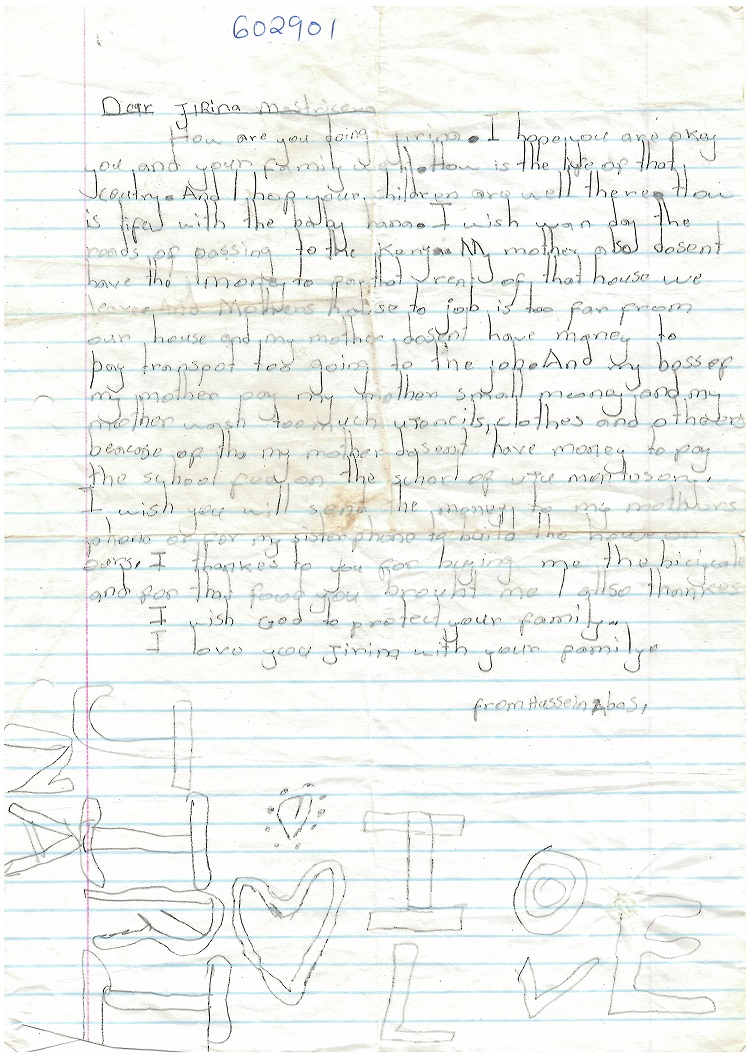 602901
Dear JIRina
How are you doing jirina. I hope you are okey
you and your family well. How is the life of that
country. And I hop your children are well there. How
is life with the baby nana. I wish wan day the
roads of passing to the Kenya. My mother also dosent
have the money to pay that rent of that house we
leave And Mothers house to job is too far from
our house and my mother dosent have money to
pay transpot too going to the job. And my boss of
my mother pay my mother small money and my
mother wash toomuch utencils, clothes and
becaose of tha my mother dosent have money to pay
the school fee on the school of
I wish you will send the money to my mothers
phone or for my sister phone to build the house
ours. I thankes to you for buying me the bicicale
and for that food you brought me I allso thankes
I wish God to protect your family.
I love you Jirina with your family.
from Hussein Abas,
I
LOVE